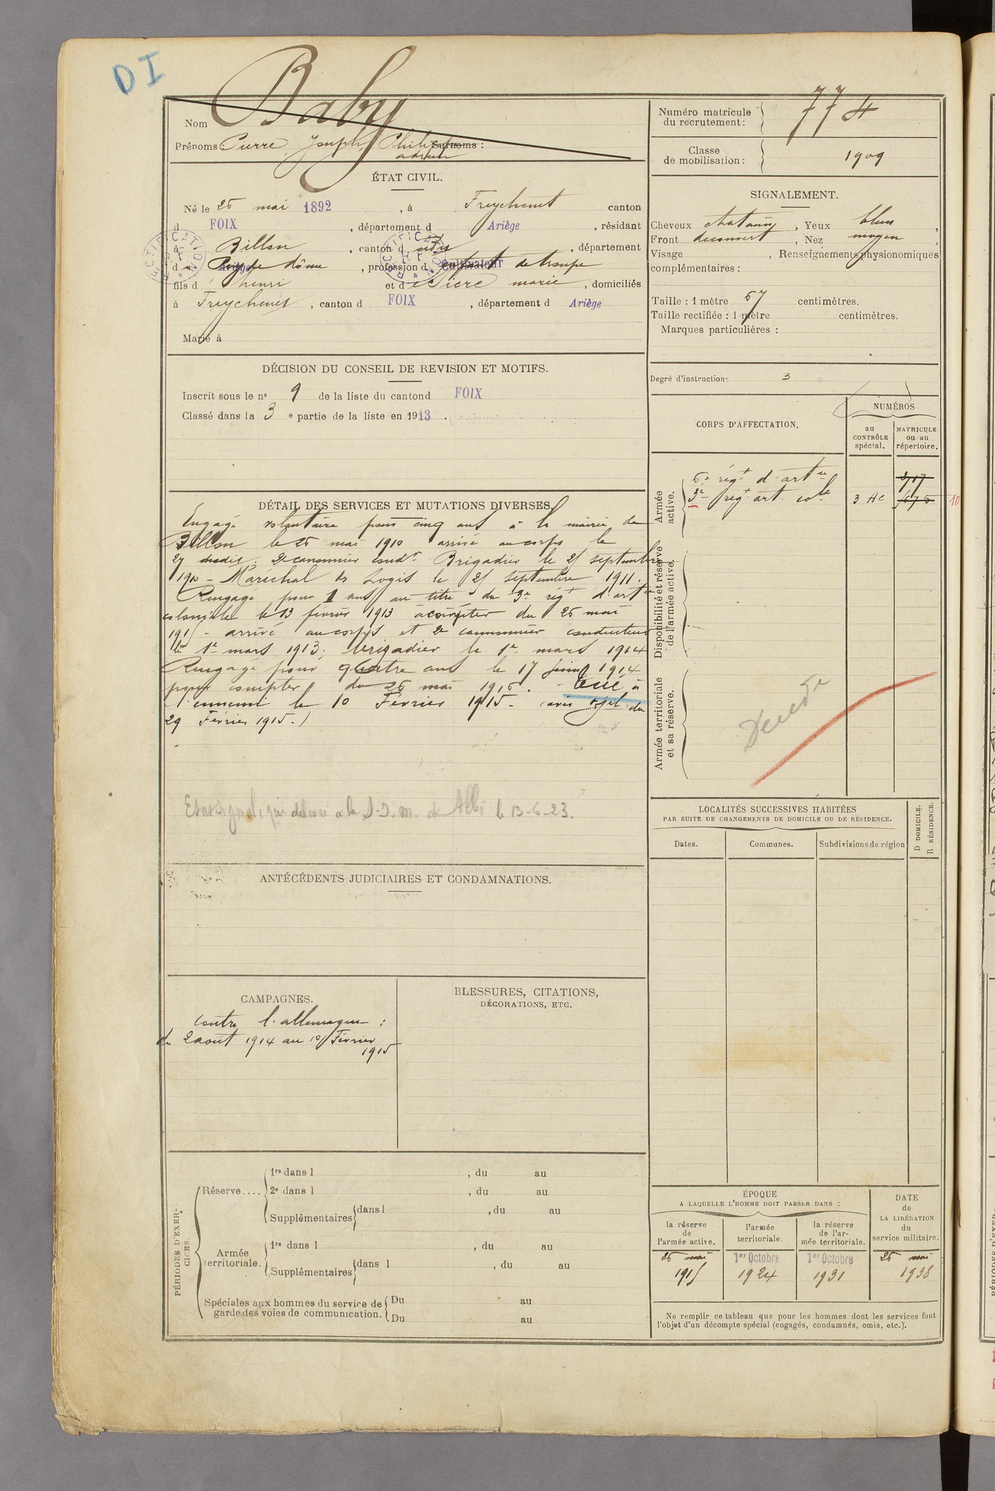 DI
Nom Baby
Prénoms Pierre Joseph Surnoms :
ÉTAT CIVIL.
Né le 25 mai 1892, à Freychenet canton
d FOIX, département d Ariège, résidant
Billon, canton d, département
d Puy de Dôme, profession d de troupe
fils d henri et d Sicre marie, domiciliés
à Freychenet, canton d FOIX, département d Ariège
Marié à
DÉCISION DU CONSEIL DE REVISION ET MOTIFS.
Inscrit sous le n° 9 de la liste du canton d FOIX
Classé dans la 3 e partie de la liste en 1913.
DÉTAIL DES SERVICES ET MUTATIONS DIVERSES.
Engagé volontaire pour cinq ans à la mairie de
Billon le 25 mai 1910 arrivé au corps le
27 dudit. 2e canonnier condr Brigadier le 21 septembre
1910 - Maréchal des Logis le 21 septembre 1911.
Rengagé pour 1 ans au titre du 3e regt d'artie
coloniale le 13 février 1913 à compter du 25 mai
1915 - arrivé au corps et 2e canonnier conducteur
le 1er mars 1913. brigadier le 1er mars 1914
Rengagé pour quatre ans le 17 juin 1914
pour compter du 25 mai 1915. - Tué à
l'ennemi le 10 Février 1915 - (avis offel du
29 Février 1915.)
délivré à la S.I.M. de Albi le 13-6-23.
ANTÉCÉDENTS JUDICIAIRES ET CONDAMNATIONS.
CAMPAGNES.
Contre l'allemagne :
du 2 août 1914 au 10 Février
1915
BLESSURES, CITATIONS,
DÉCORATIONS, ETC.
PÉRIODES D'EXERCICES.
Réserve....
1re dans l , du au
2e dans l , du au
Supplémentaires dans l , du au
Armée territoriale.
1re dans l , du au
Supplémentaires dans l , du au
Spéciales aux hommes du service de
garde des voies de communication.
Du au
Du au
Numéro matricule
du recrutement : 774
Classe
de mobilisation : 1909
SIGNALEMENT.
Cheveux chatains, Yeux bleus,
Front découvert, Nez moyen,
Visage , Renseignements physionomiques
complémentaires :
Taille : 1 mètre 67 centimètres.
Taille rectifiée : 1 mètre centimètres.
Marques particulières :
Degré d'instruction : 3
CORPS D'AFFECTATION.
NUMÉROS
au
CONTRÔLE
spécial.
MATRICULE
ou au
répertoire.
Armée
active.
6e régt d'artie
3e regt art cole
3 Hc
10
Disponibilité et réserve
de l'armée active.
Armée territoriale
et sa réserve.
Décédé
LOCALITÉS SUCCESSIVES HABITÉES
PAR SUITE DE CHANGEMENTS DE DOMICILE OU DE RÉSIDENCE.
Dates.
Communes.
Subdivisions de région
D DOMICILE.
R RÉSIDENCE.
ÉPOQUE
A LAQUELLE L'HOMME DOIT PASSER DANS :
la réserve
de
l'armée active.
l'armée
territoriale.
la réserve
de l'ar-
mée territoriale.
DATE
de
LA LIBÉRATION
du
service militaire.
25 mai
1915
1er Octobre
1924
1er Octobre
1931
25 mai
1938
Ne remplir ce tableau que pour les hommes dont les services font
l'objet d'un décompte spécial (engagés, condamnés, omis, etc.).